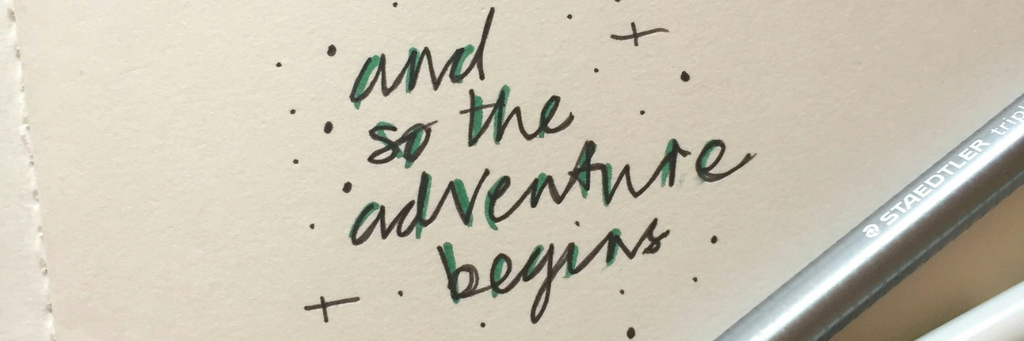 and
so the
adventure
begins
STAEDTLER tripl